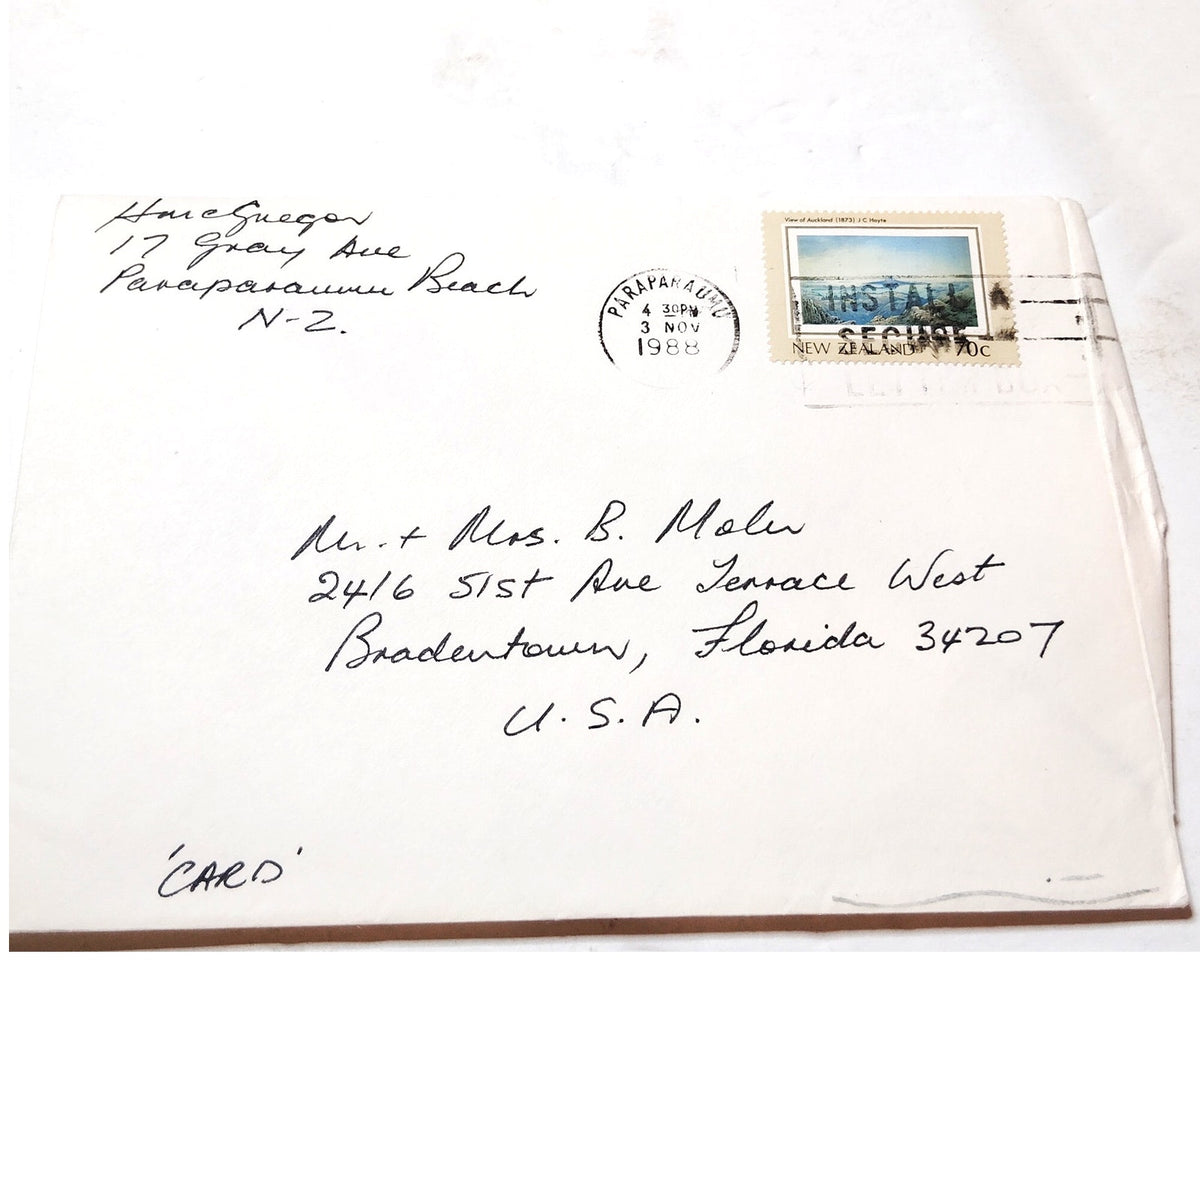 H McGregor
17 Gray Ave
Paraparaumu Beach
N-Z.
View of Auckland (1873) J C Hoyte
NEW ZEALAND 70c
PARAPARAUMU
4 30PM
3 NOV
1988
INSTALL A
SECURE
LETTER BOX
Mr. + Mrs. B. Moler
2416 51st Ave Terrace West
Bradentown, Florida 34207
U.S.A.
'CARD'